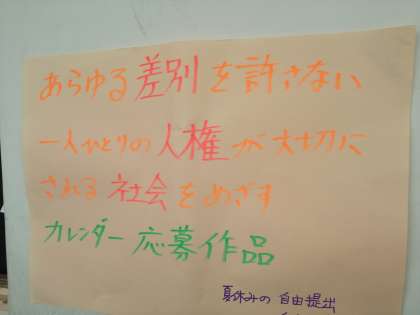 あらゆる差別を許さない
一人ひとりの人権が大切に
される社会をめざす
カレンダー応募作品
夏休みの自由提出